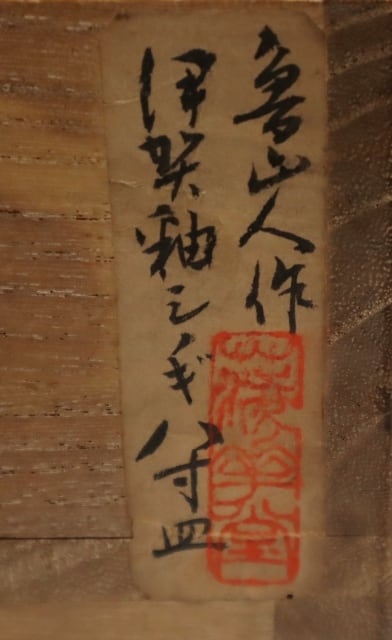 魯山人作
伊賀釉シノギ八寸皿